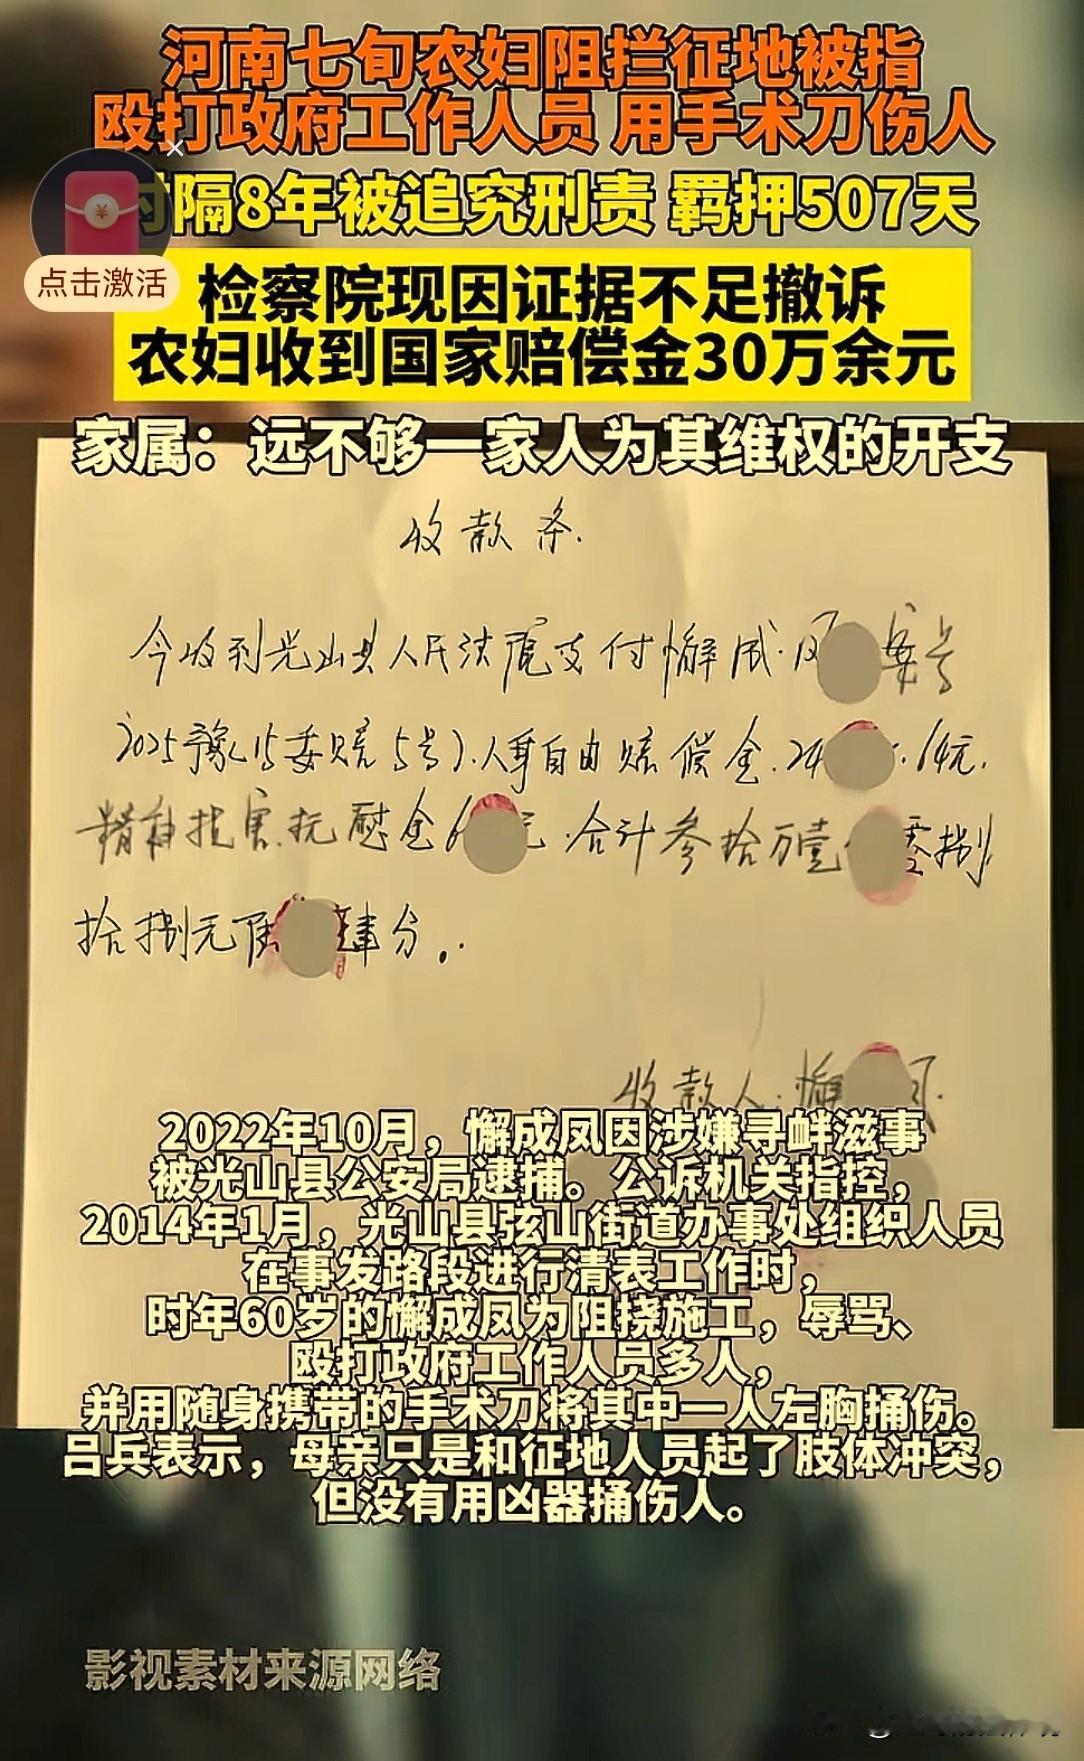 河南七旬农妇阻拦征地被指
殴打政府工作人员 用手术刀伤人
时隔8年被追究刑责 羁押507天
点击激活
检察院现因证据不足撤诉
农妇收到国家赔偿金30万余元
家属：远不够一家人为其维权的开支
收款条.
今收到光山县人民法院支付懈成凤 案号
2025豫15委赔5号).人身自由赔偿金.24 .64元.
精神损害抚慰金6 元.合计叁拾万壹 零捌
拾捌元陆 肆分.
收款人:懈 凤.
2022年10月，懈成凤因涉嫌寻衅滋事
被光山县公安局逮捕。公诉机关指控，
2014年1月，光山县弦山街道办事处组织人员
在事发路段进行清表工作时，
时年60岁的懈成凤为阻挠施工，辱骂、
殴打政府工作人员多人，
并用随身携带的手术刀将其中一人左胸捅伤。
吕兵表示，母亲只是和征地人员起了肢体冲突，
但没有用凶器捅伤人。
影视素材来源网络